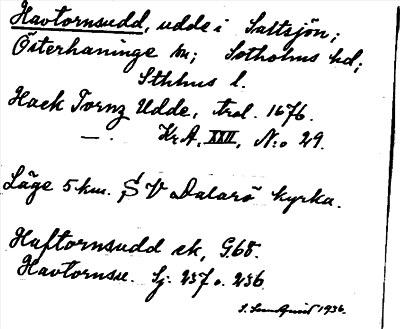 Havtornsudd, udde i Saltsjön;
Österhaninge sn; Sotholms hd;
Sthlms l.
Hack Tornz Udde, trol. 1676.
— . Kr A, XXII, N:o 29.
Läge 5 km. SV Dalarö kyrka.
Haftornsudd ek, G68.
Havtornsu. Sj. 257 o. 256.
S. Sundquist 1936.